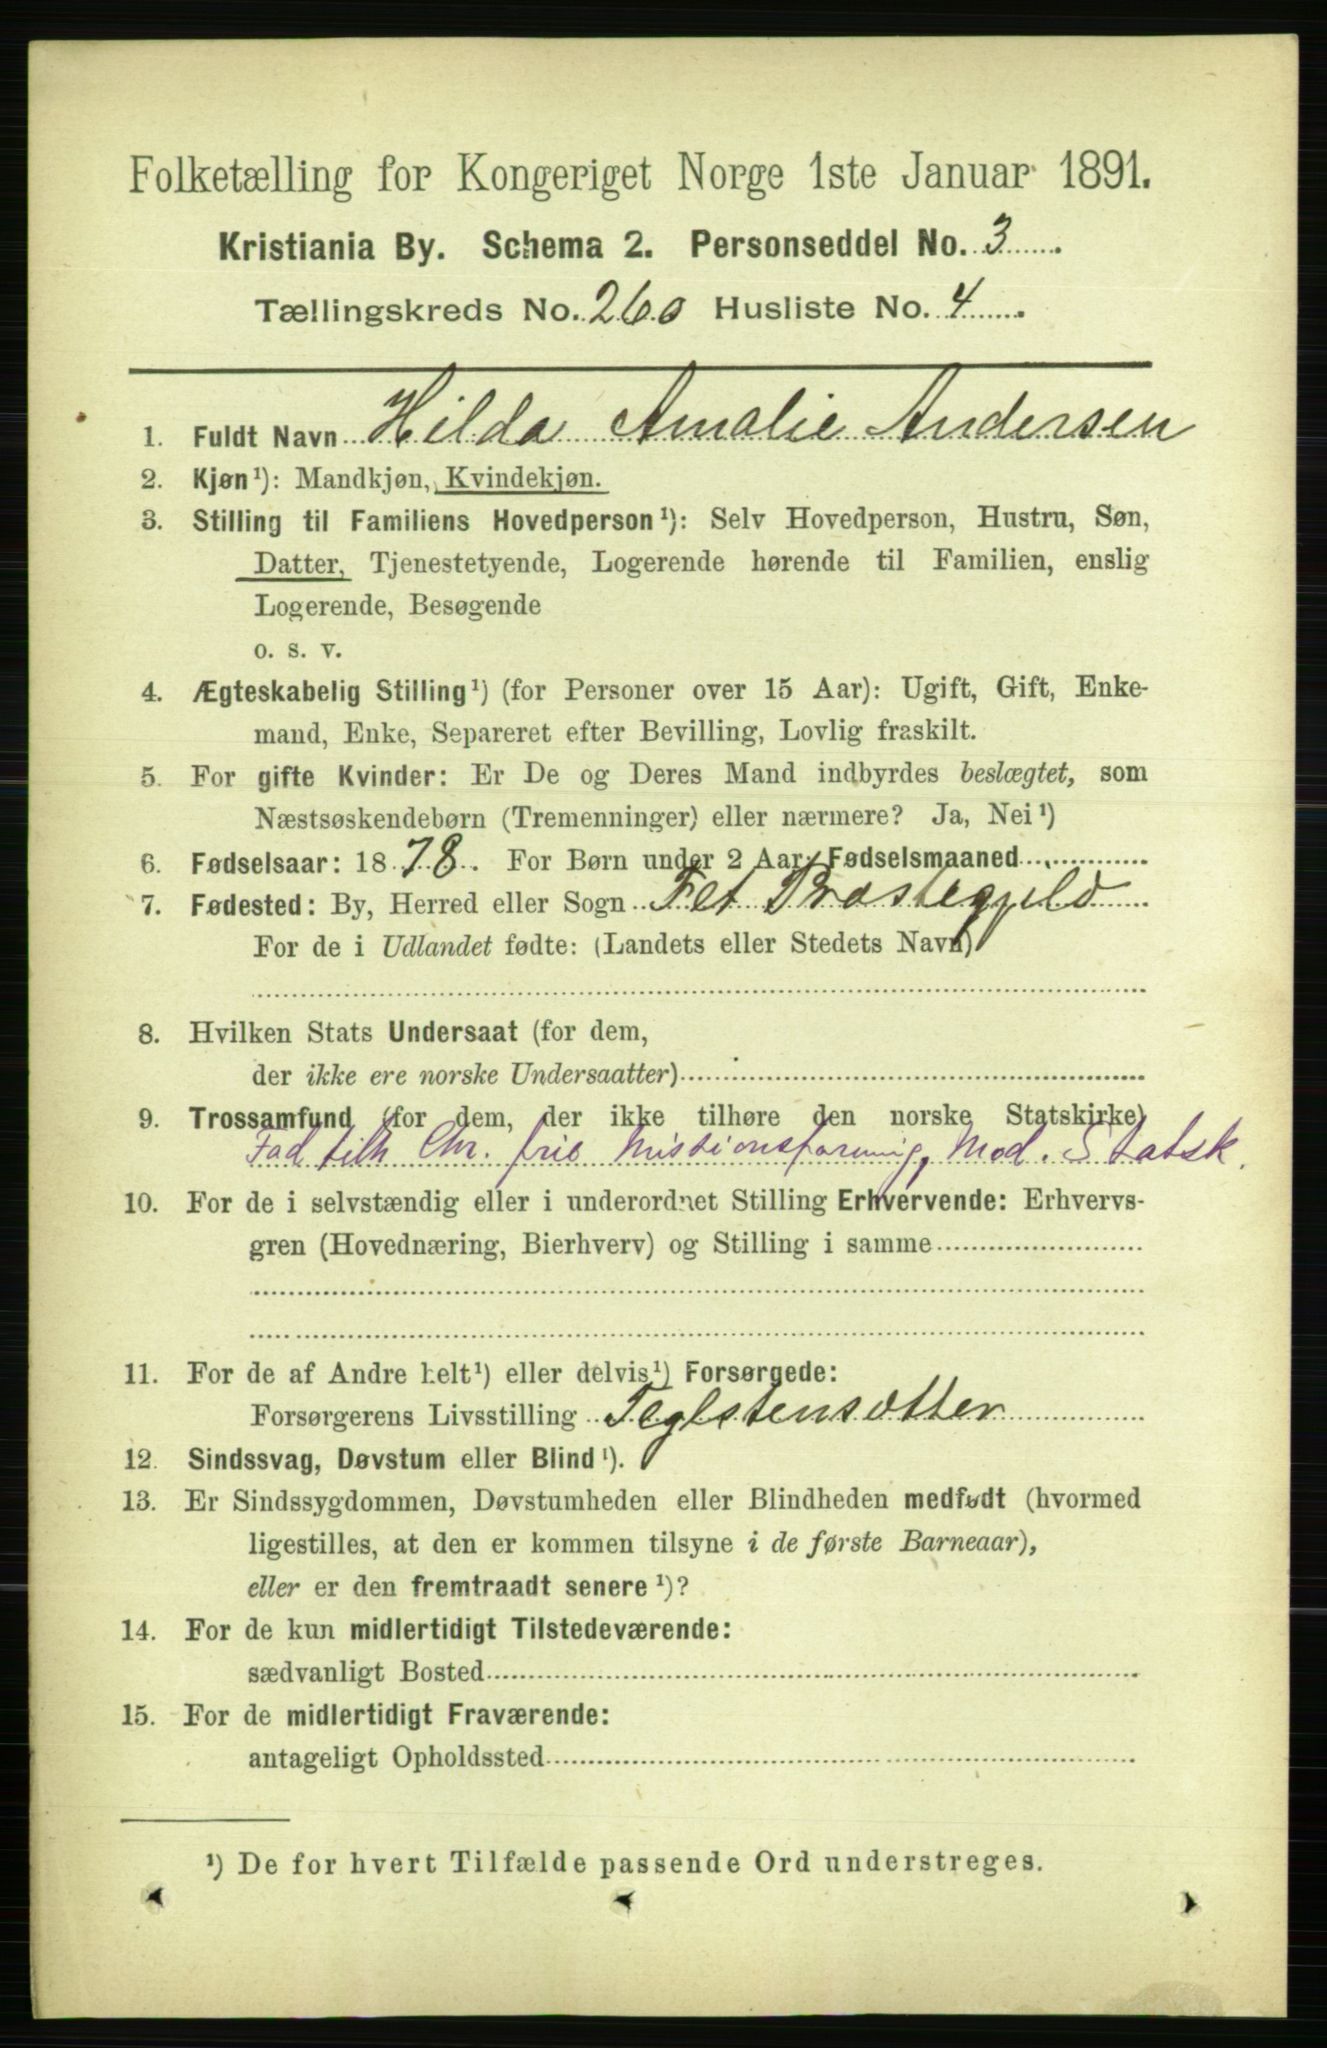 Folketælling for Kongeriget Norge 1ste Januar 1891.
Kristiania By. Schema 2. Personseddel No. 3
Tællingskreds No. 260 Husliste No. 4
1. Fuldt Navn Hilda Amalie Andersen
2. Kjøn¹): Mandkjøn, Kvindekjøn.
3. Stilling til Familiens Hovedperson¹): Selv Hovedperson, Hustru, Søn,
Datter, Tjenestetyende, Logerende hørende til Familien, enslig
Logerende, Besøgende
o. s. v.
4. Ægteskabelig Stilling¹) (for Personer over 15 Aar): Ugift, Gift, Enke-
mand, Enke, Separeret efter Bevilling, Lovlig fraskilt.
5. For gifte Kvinder: Er De og Deres Mand indbyrdes beslægtet, som
Næstsøskendebørn (Tremenninger) eller nærmere? Ja, Nei¹)
6. Fødselsaar: 1878. For Børn under 2 Aar: Fødselsmaaned
7. Fødested: By, Herred eller Sogn Fet Præstegjeld
For de i Udlandet fødte: (Landets eller Stedets Navn)
8. Hvilken Stats Undersaat (for dem,
der ikke ere norske Undersaatter)
9. Trossamfund (for dem, der ikke tilhøre den norske Statskirke)
Fad tilh Chr. frie Missionsforening, Mod. Statsk.
10. For de i selvstændig eller i underordnet Stilling Erhvervende: Erhvervs-
gren (Hovednæring, Bierhverv) og Stilling i samme
11. For de af Andre helt¹) eller delvis¹) Forsørgede:
Forsørgerens Livsstilling Teglstensætter
12. Sindssvag, Døvstum eller Blind¹).
13. Er Sindssygdommen, Døvstumheden eller Blindheden medfødt (hvormed
ligestilles, at den er kommen tilsyne i de første Barneaar),
eller er den fremtraadt senere¹)?
14. For de kun midlertidigt Tilstedeværende:
sædvanligt Bosted
15. For de midlertidigt Fraværende:
antageligt Opholdssted
¹) De for hvert Tilfælde passende Ord understreges.